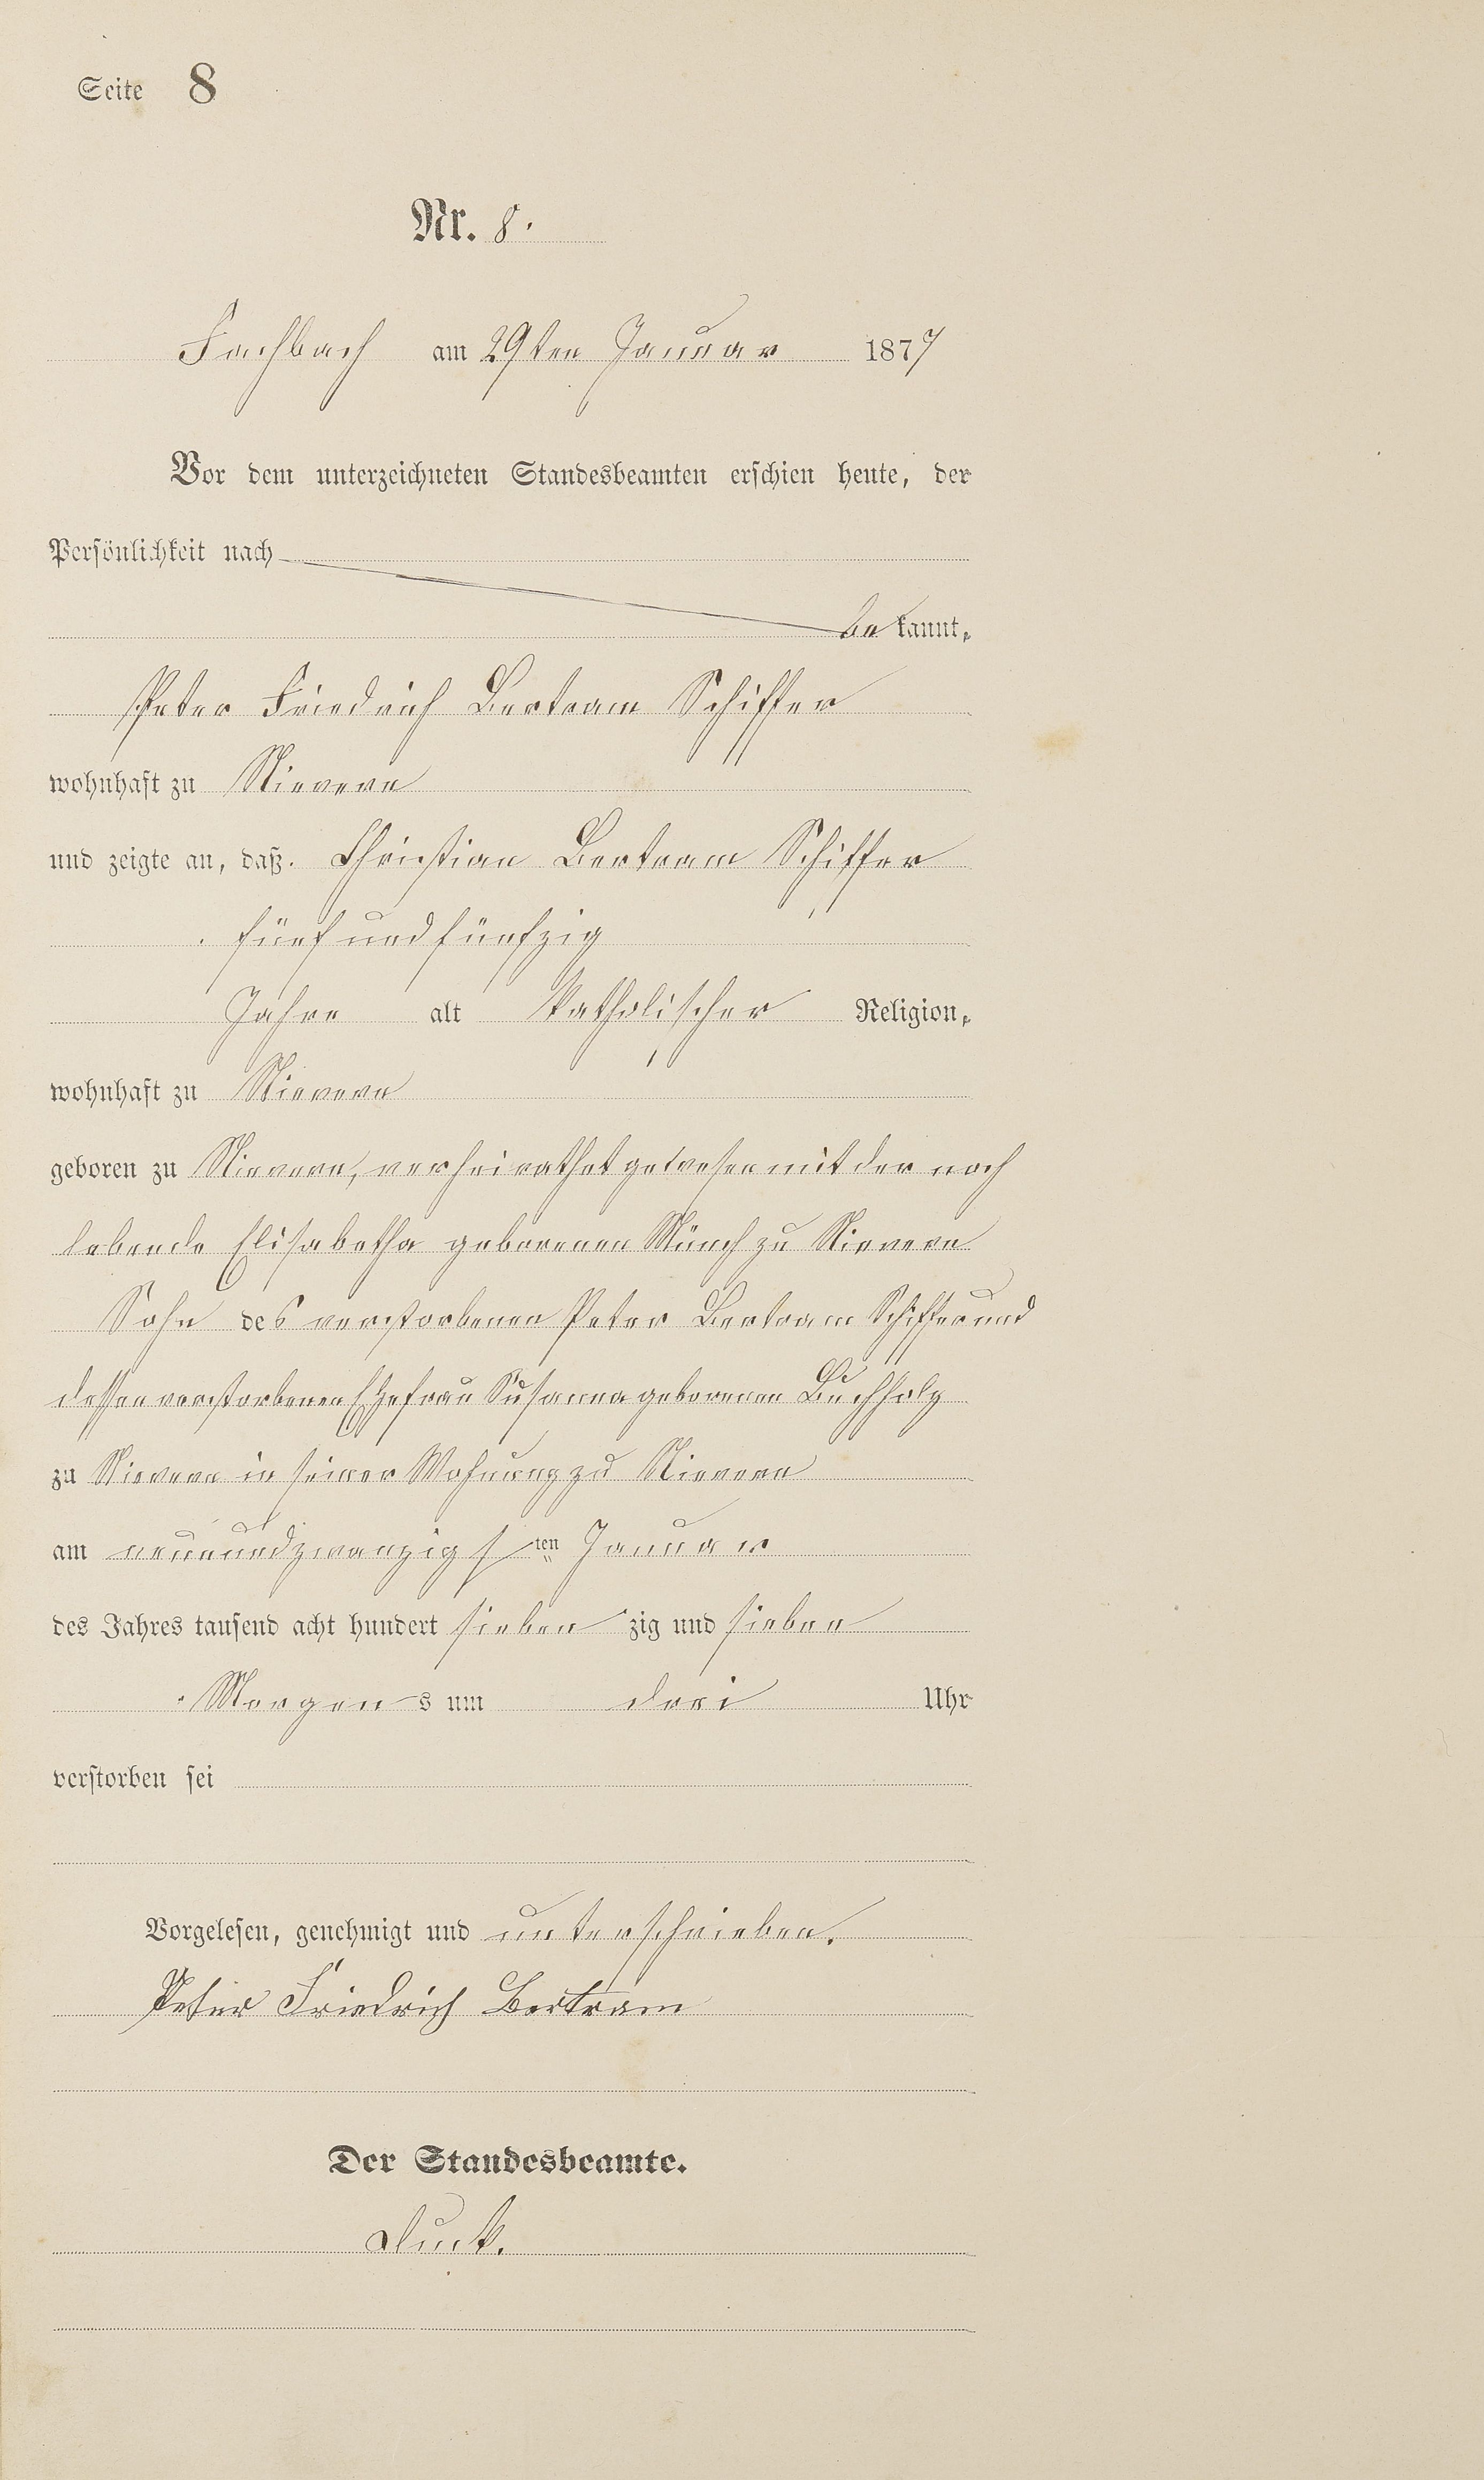 Seite 8
Nr. 8.
Fachbach am 29ten Januar 1877
Vor dem unterzeichneten Standesbeamten erschien heute, der
Persönlichkeit nach
bekannt,
Peter Friedrich Bertram Schiffer
wohnhaft zu Nievern
und zeigte an, daß Christian Bertram Schiffer
fünf und fünfzig
Jahre alt katholischer Religion,
wohnhaft zu Nievern
geboren zu Nievern, verheirathet gewesen mit der noch
lebende Elisabetha geborenen Münch zu Nievern
Sohn des verstorbenen Peter Bertram Schiffer und
dessen verstorbenen Ehefrau Susanna geborenen Buchholz
zu Nievern in seiner Wohnung zu Nievern
am neunundzwanzigsten Januar
des Jahres tausend acht hundert siebenzig und sieben
Morgens um drei Uhr
verstorben sei
Vorgelesen, genehmigt und unterschrieben.
Peter Friedrich Bertram
Der Standesbeamte.
Duck.